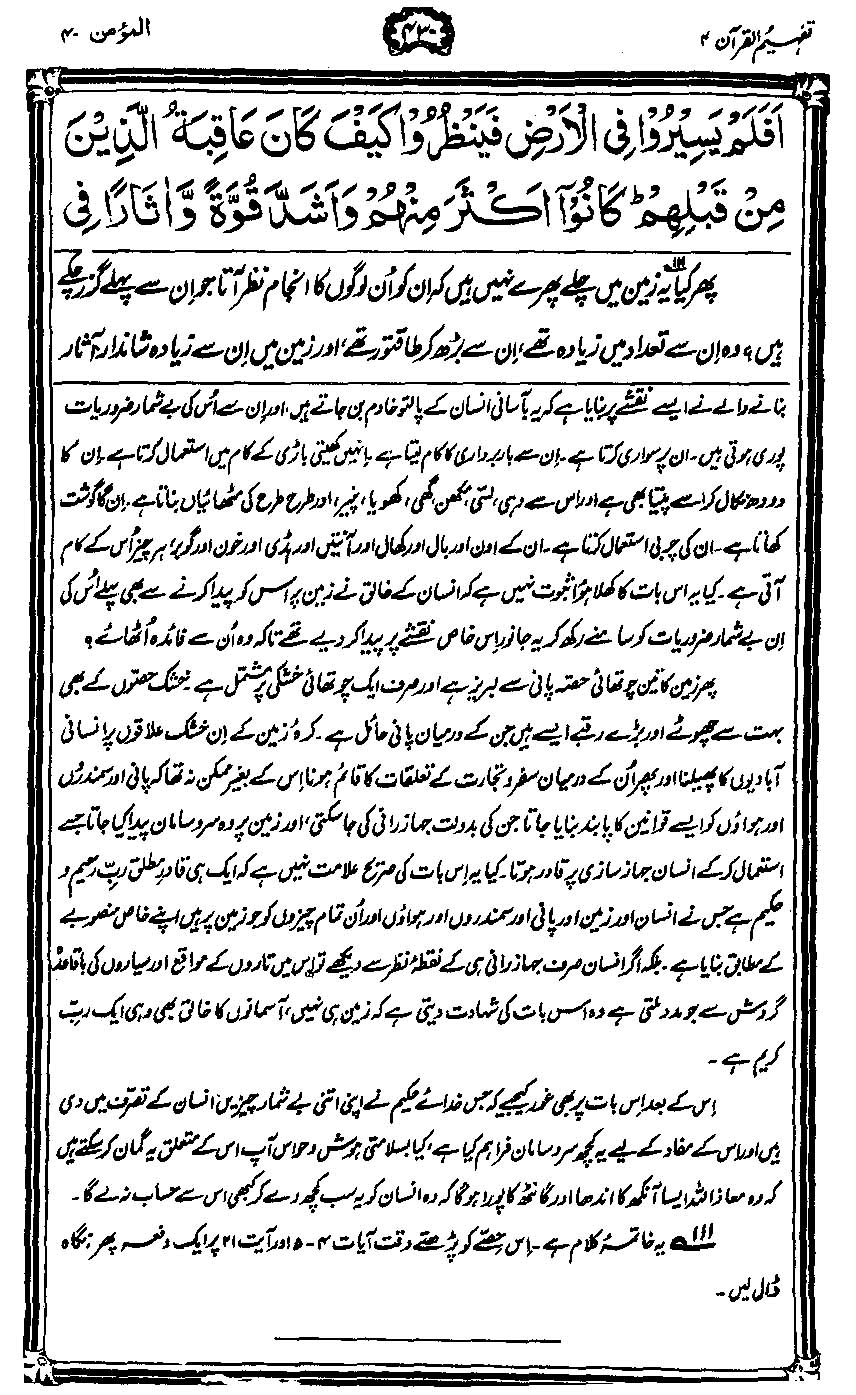 تفہیم القرآن ۴
۴۳۰
المؤمن ۴۰
اَفَلَمْ يَسِيْرُوْا فِي الْاَرْضِ فَيَنْظُرُوْا كَيْفَ كَانَ عَاقِبَةُ الَّذِيْنَ
مِنْ قَبْلِهِمْ ؕ كَانُوْٓا اَكْثَرَ مِنْهُمْ وَاَشَدَّ قُوَّةً وَّاٰثَارًا فِي
پھر کیا۱۱۱ یہ زمین میں چلے پھرے نہیں ہیں کہ ان کو اُن لوگوں کا انجام نظر آتا جو ان سے پہلے گزر چکے
ہیں؟ وہ اِن سے تعداد میں زیادہ تھے، اِن سے بڑھ کر طاقتور تھے، اور زمین میں اِن سے زیادہ شاندار آثار
بنانے والے نے ایسے نقشے پر بنایا ہے کہ یہ بآسانی انسان کے پالتو خادم بن جاتے ہیں، اور اِن سے اُس کی بے شمار ضروریات
پوری ہوتی ہیں۔ ان پر سواری کرتا ہے۔ اِن سے باربرداری کا کام لیتا ہے۔ انہیں کھیتی باڑی کے کام میں استعمال کرتا ہے۔ اِن کا
دودھ نکال کر اسے پیتا بھی ہے اور اس سے دہی، لسّی، مکھن، گھی، کھویا، پنیر، اور طرح طرح کی مٹھائیاں بناتا ہے۔ اِن کا گوشت
کھاتا ہے۔ ان کی چربی استعمال کرتا ہے۔ ان کے اون اور بال اور کھال اور آنتیں اور ہڈی اور خون اور گوبر، ہر چیز اُس کے کام
آتی ہے۔ کیا یہ اس بات کا کھلا ہوا ثبوت نہیں ہے کہ انسان کے خالق نے زمین پر اس کو پیدا کرنے سے بھی پہلے اُس کی
اِن بے شمار ضروریات کو سامنے رکھ کر یہ جانور اِس خاص نقشے پر پیدا کر دیے تھے تاکہ وہ اُن سے فائدہ اُٹھائے؟
پھر زمین کا تین چوتھائی حصہ پانی سے لبریز ہے اور صرف ایک چوتھائی خشکی پر مشتمل ہے۔ خشک حصّوں کے بھی
بہت سے چھوٹے اور بڑے رقبے ایسے ہیں جن کے درمیان پانی حائل ہے۔ کرۂ زمین کے اِن خشک علاقوں پر انسانی
آبادیوں کا پھیلنا اور پھر اُن کے درمیان سفر و تجارت کے تعلقات کا قائم ہونا اِس کے بغیر ممکن نہ تھا کہ پانی اور سمندروں
اور ہواؤں کو ایسے قوانین کا پابند بنایا جاتا جن کی بدولت جہاز رانی کی جا سکتی، اور زمین پر وہ سروسامان پیدا کیا جاتا جسے
استعمال کر کے انسان جہاز سازی پر قادر ہوتا۔ کیا یہ اِس بات کی صریح علامت نہیں ہے کہ ایک ہی قادرِ مطلق ربِّ رحیم و
حکیم ہے جس نے انسان اور زمین اور پانی اور سمندروں اور ہواؤں اور اُن تمام چیزوں کو جو زمین پر ہیں اپنے خاص منصوبے
کے مطابق بنایا ہے۔ بلکہ اگر انسان صرف جہاز رانی ہی کے نقطۂ نظر سے دیکھے تو اِس میں تاروں کے مواقع اور سیاروں کی باقاعدہ
گردش سے جو مدد ملتی ہے وہ اس بات کی شہادت دیتی ہے کہ زمین ہی نہیں، آسمانوں کا خالق بھی وہی ایک ربِّ
کریم ہے۔
اِس کے بعد اِس بات پر بھی غور کیجیے کہ جس خدائے حکیم نے اپنی اتنی بے شمار چیزیں انسان کے تصرّف میں دی
ہیں اور اس کے مفاد کے لیے یہ کچھ سروسامان فراہم کیا ہے، کیا بسلامتیِ ہوش و حواس آپ اس کے متعلق یہ گمان کر سکتے ہیں
کہ وہ معاذ اللہ ایسا آنکھ کا اندھا اور گانٹھ کا پورا ہوگا کہ وہ انسان کو یہ سب کچھ دے کر کبھی اس سے حساب نہ لے گا۔
۱۱۱ یہ خاتمۂ کلام ہے۔ اِس حصّے کو پڑھتے وقت آیات ۴-۵ اور آیت ۲۱ پر ایک دفعہ پھر نگاہ
ڈال لیں۔